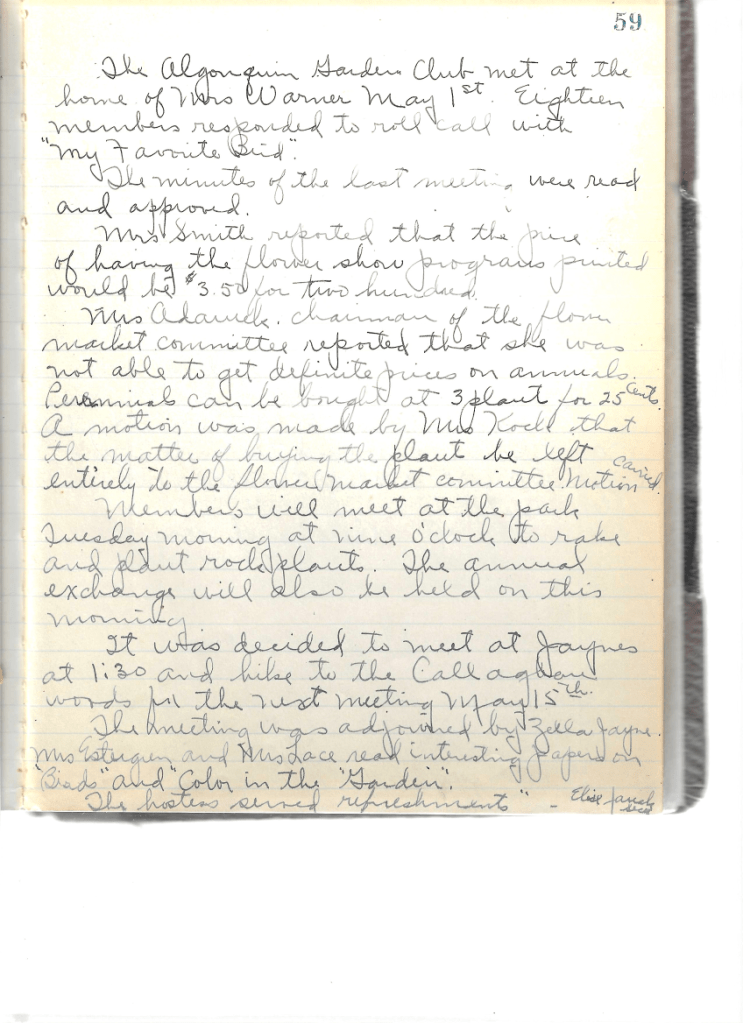 59
The Algonquin Garden Club met at the
home of Mrs Warner May 1st. Eighteen
members responded to roll call with
"My Favorite Bird".
The minutes of the last meeting were read
and approved.
Mrs Smith reported that the price
of having the flower show programs printed
would be $3.50 for two hundred.
Mrs chairman of the flower
market committee reported that she was
not able to get definite prices on annuals.
Perennials can be bought at 3 plant for 25 cents.
A motion was made by Mrs Koch that
the matter of buying the plant be left
entirely to the flower market committee Motion carried.
Members will meet at the park
Tuesday morning at nine o'clock to rake
and plant rock plants. The annual
exchange will also be held on this
morning
It was decided to meet at Jaynes
at 1:30 and hike to the Callaghan
woods for the next meeting May 15th.
The meeting was adjourned by Zella Jayne.
Mrs Estergren and Mrs Lace read interesting papers on
"Birds" and "Color in the "Garden".
The hostess served refreshments" -
Elise
secy